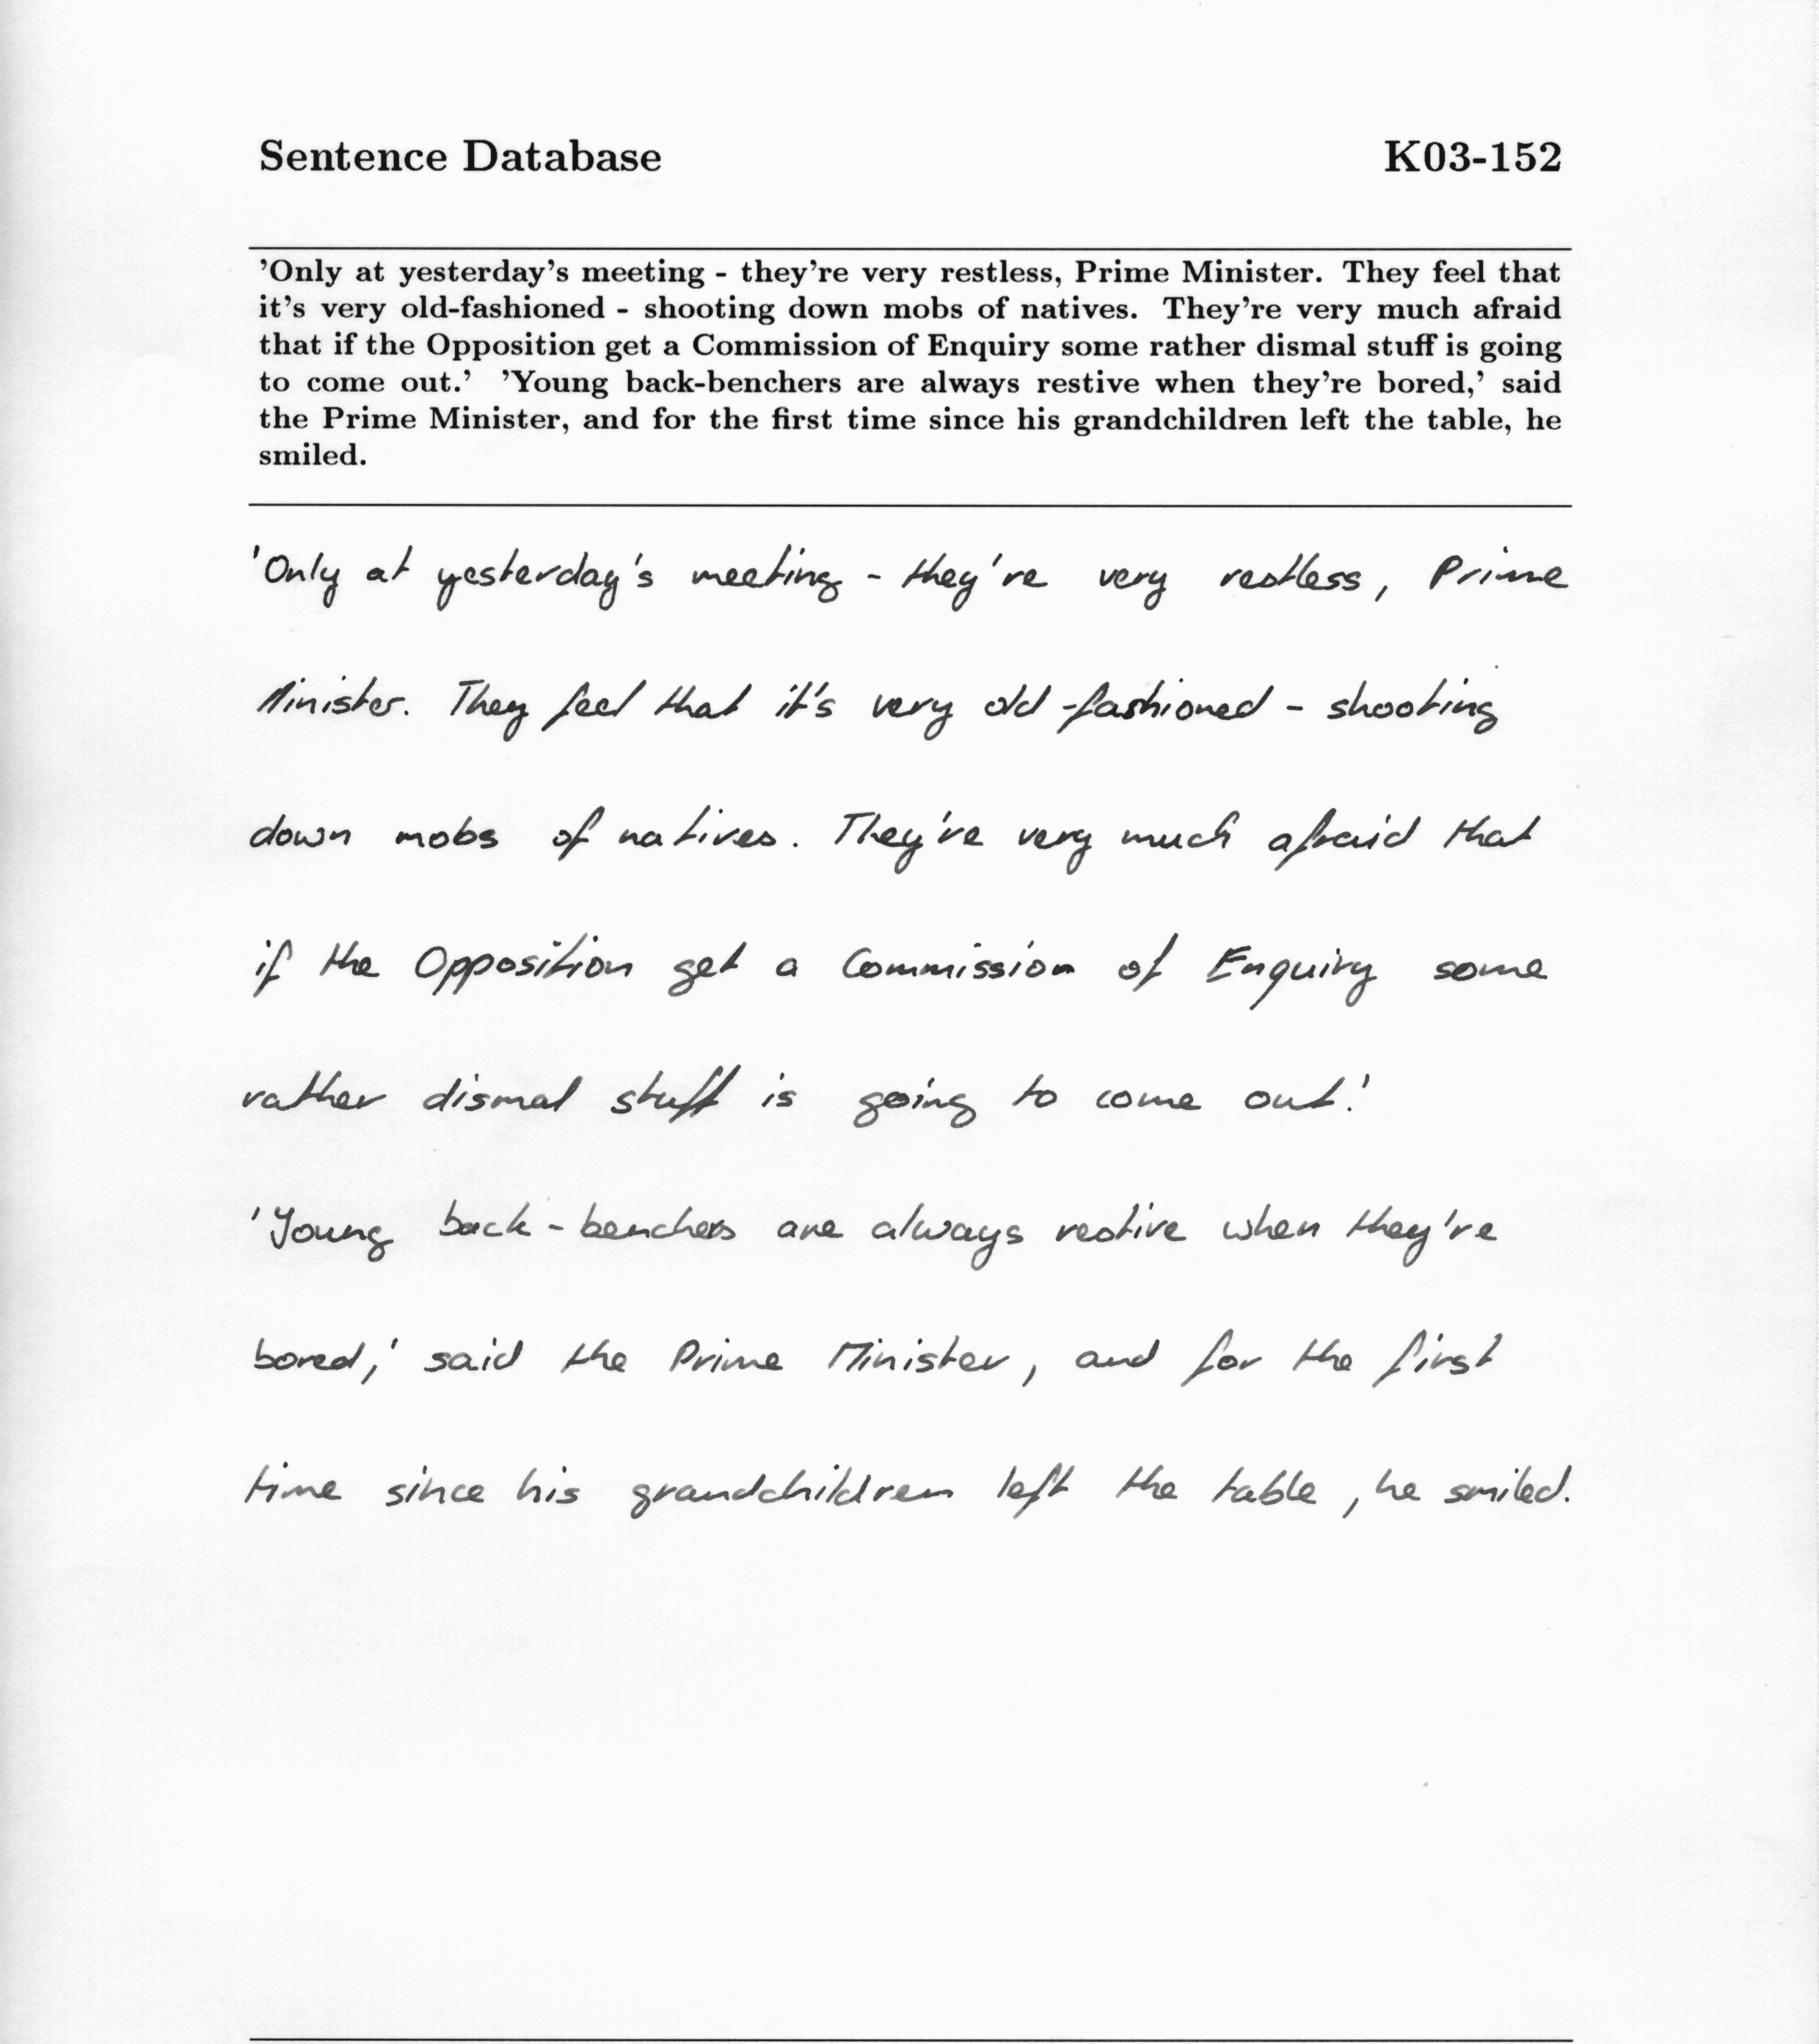 Sentence Database K03-152
’Only at yesterday’s meeting - they’re very restless, Prime Minister. They feel that
it’s very old-fashioned - shooting down mobs of natives. They’re very much afraid
that if the Opposition get a Commission of Enquiry some rather dismal stuff is going
to come out.’ ’Young back-benchers are always restive when they’re bored,’ said
the Prime Minister, and for the first time since his grandchildren left the table, he
smiled.
'Only at yesterday's meeting - they're very restless, Prime
Minister. They feel that it's very old-fashioned - shooting
down mobs of natives. They're very much afraid that
if the Opposition get a Commission of Enquiry some
rather dismal stuff is going to come out.'
'Young back-benchers are always restive when they're
bored,' said the Prime Minister, and for the first
time since his grandchildren left the table, he smiled.